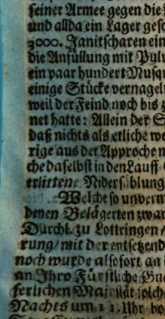 seiner Armee gegen die
und allda ein Lager gesc
3000. Janitscharen ein
die Anfüllung mit Pulv
ein paar hundert Musq
einige Stücke vernagelt
weil der Feind noch bis
net hatte: Allein der S
daß nichts als etliche we
rige aus der Approche n
che daselbst in den Lauff
erlittene Niderlag
Welche so unverm
denen Belägerten zwar
Durchl. zu Lottringen
rung/ mit der entsetzend
noch wurde alsofort an
an Ihro Fürstliche Gna
ferlichen Majestät
Nachts um 11. Uhr